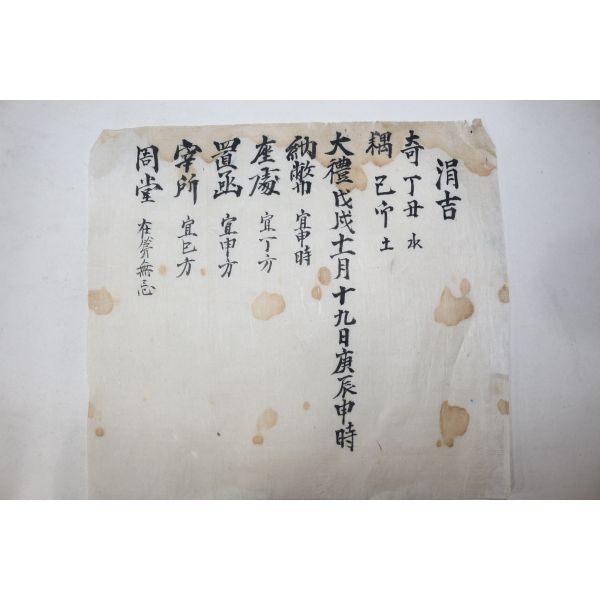 涓吉
奇 丁丑 水
耦 己卯 土
大禮戊戌十一月十九日庚辰申時
納幣 宜申時
座處 宜丁方
置函 宜申方
宰所 宜巳方
周堂 在灶無忌